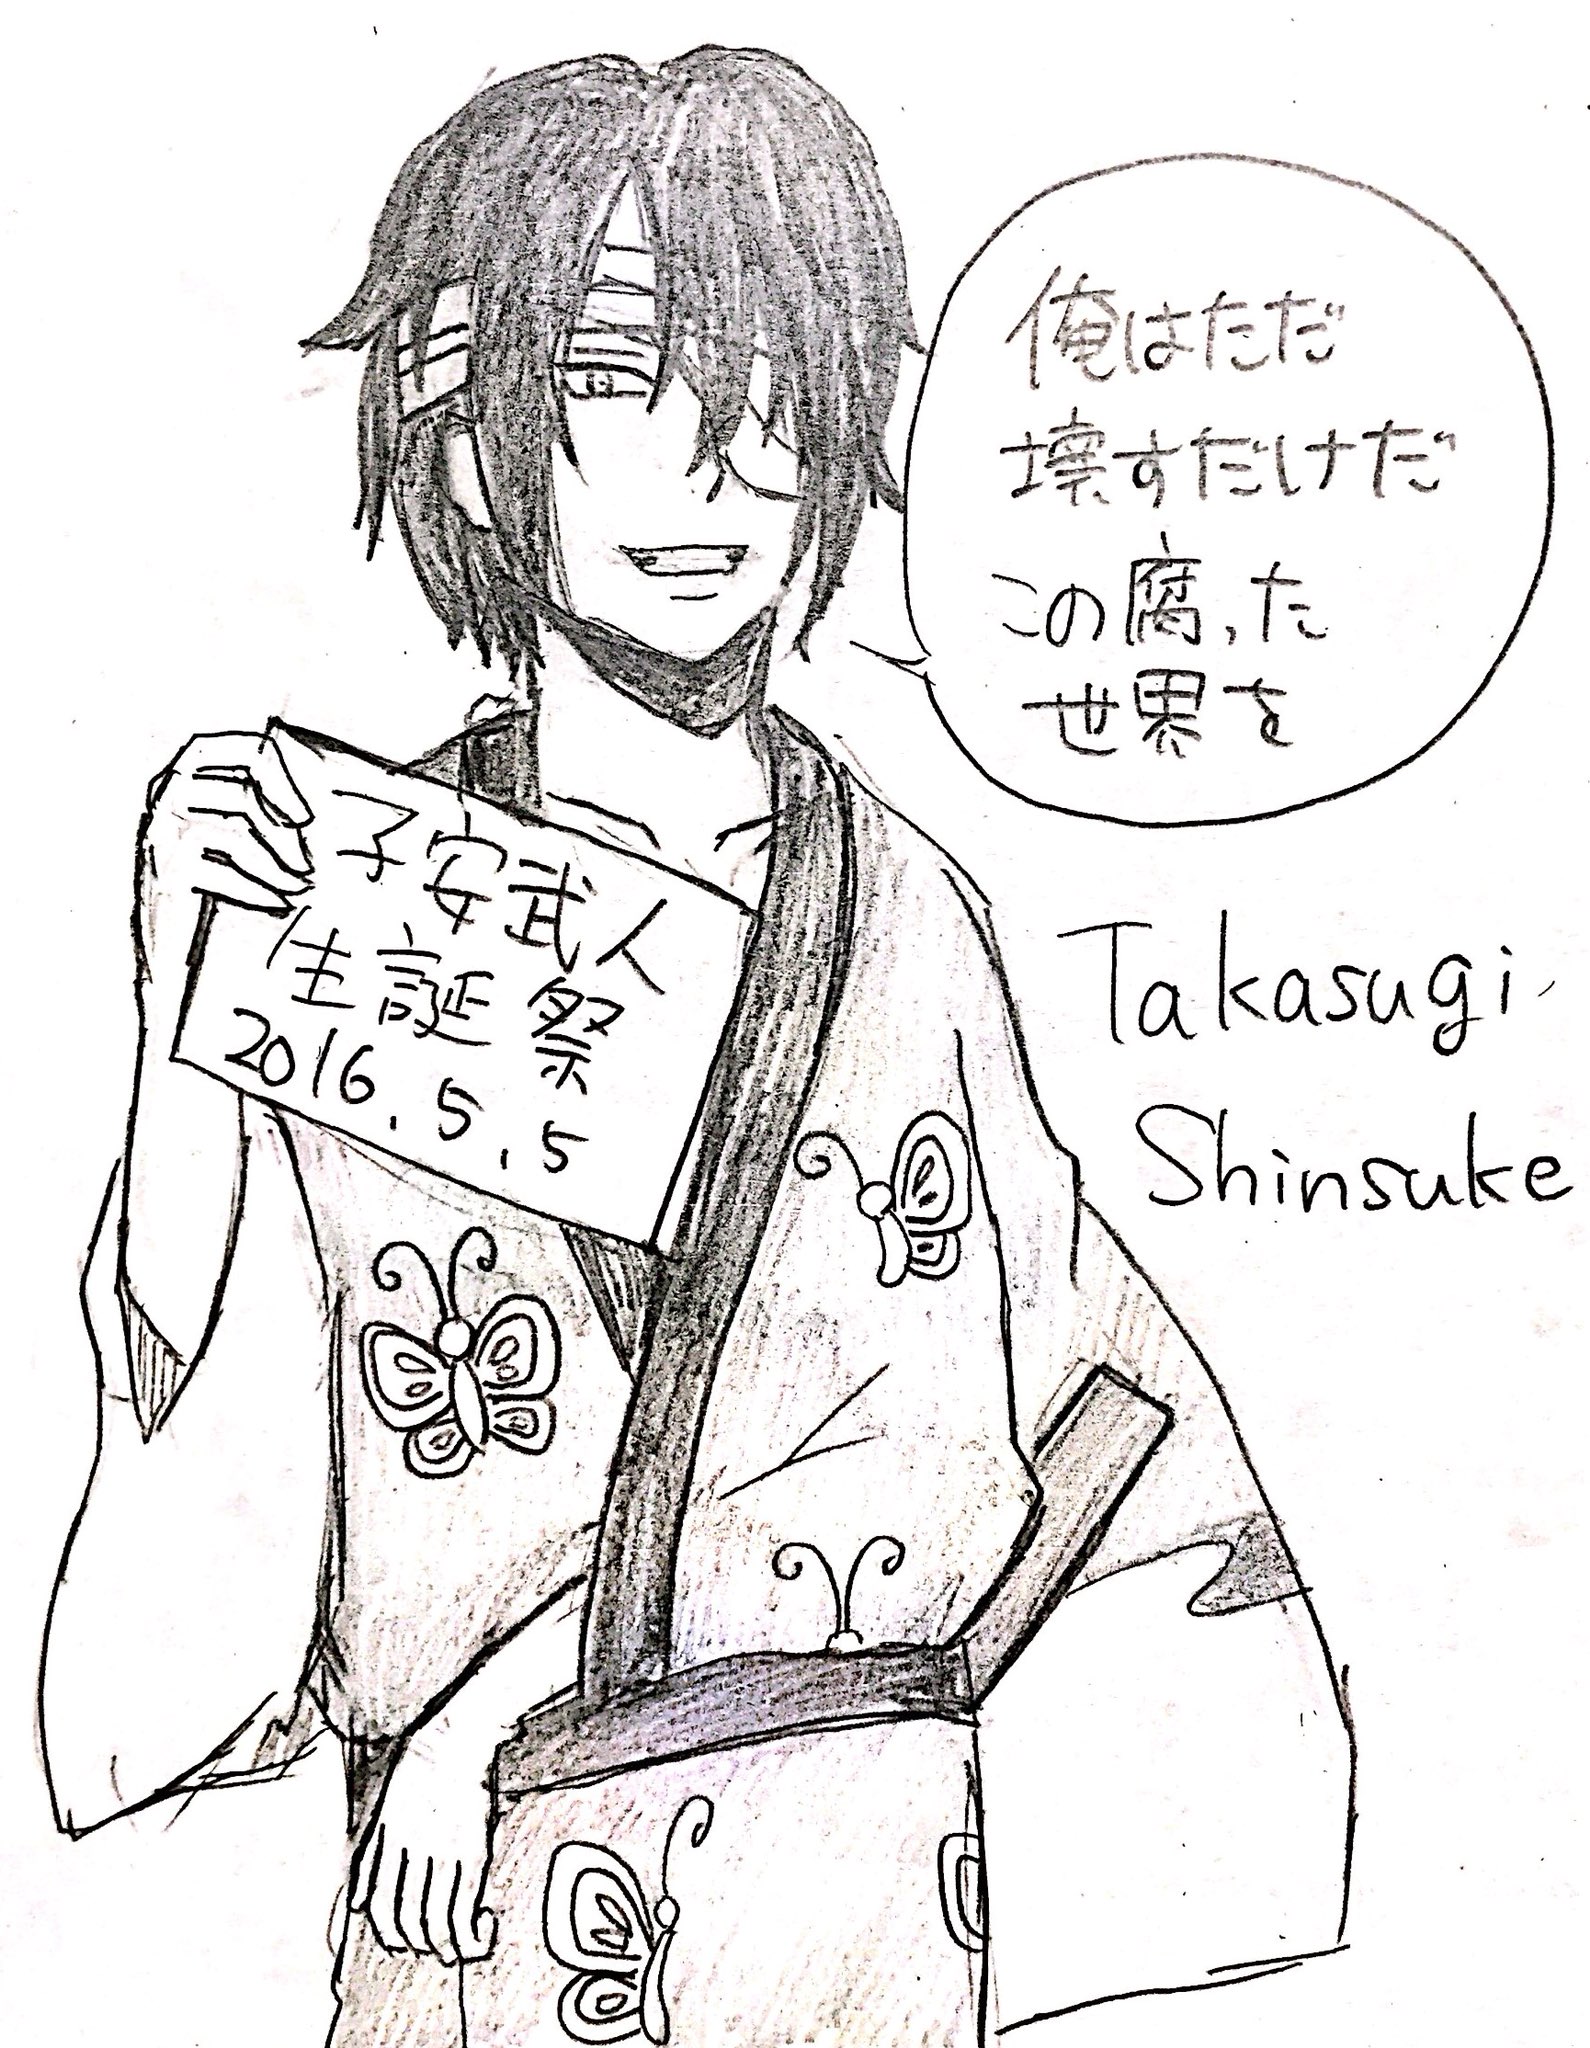 俺はただ
壊すだけだ
この腐った
世界を
子安武人
生誕祭
2016.5.5
Takasugi
Shinsuke